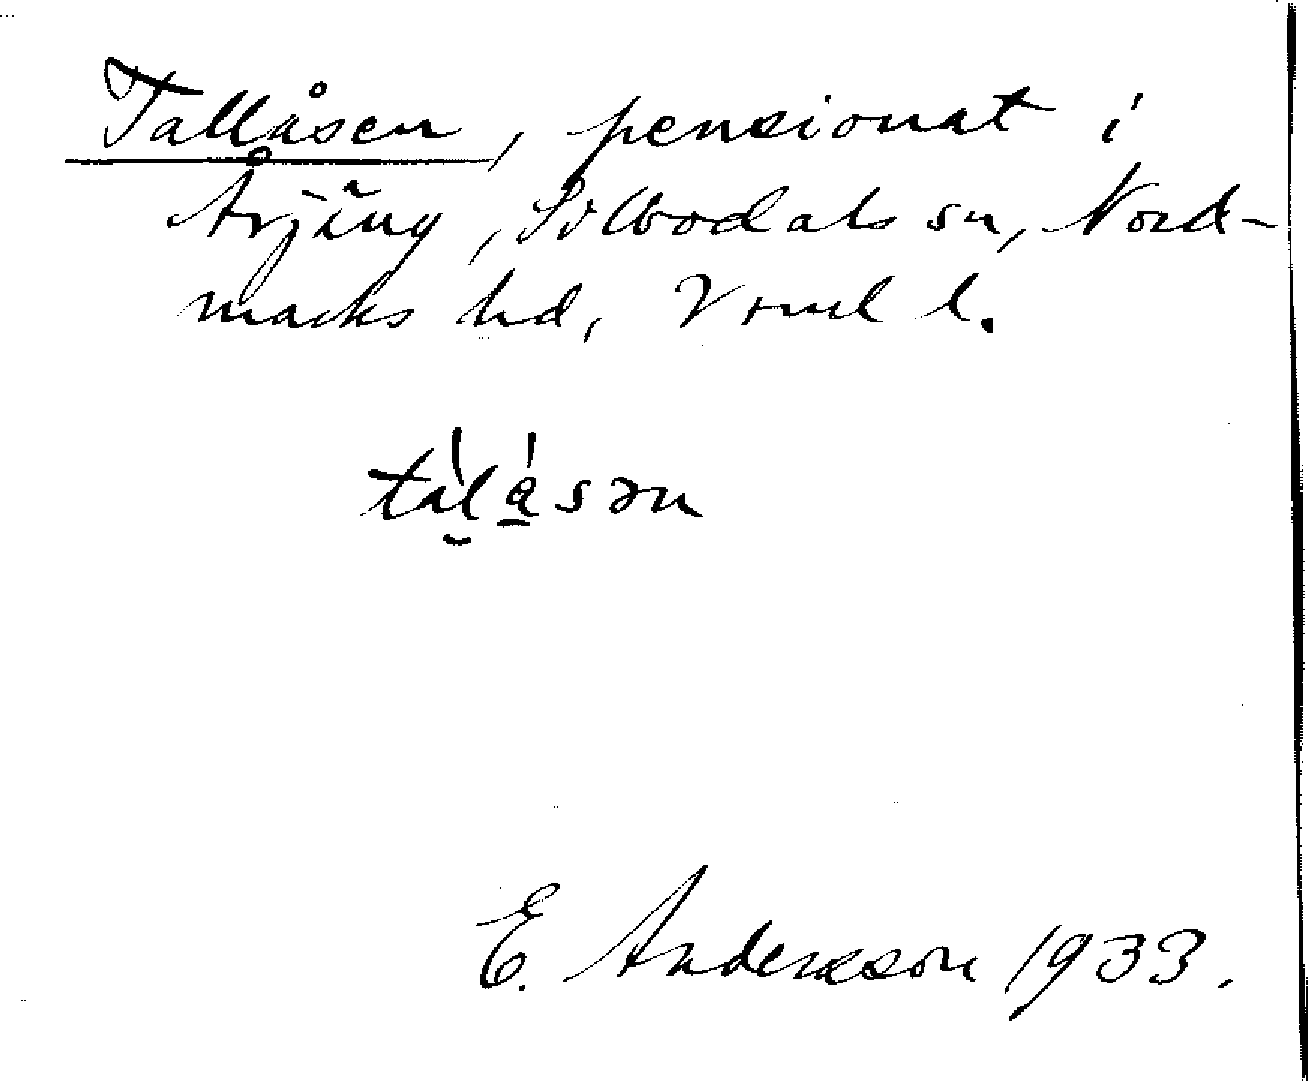 Tallåsen, pensionat i
Årjäng, Silbodals sn, Nord-
marks hd, Vrml l.
E. Andersson 1933.